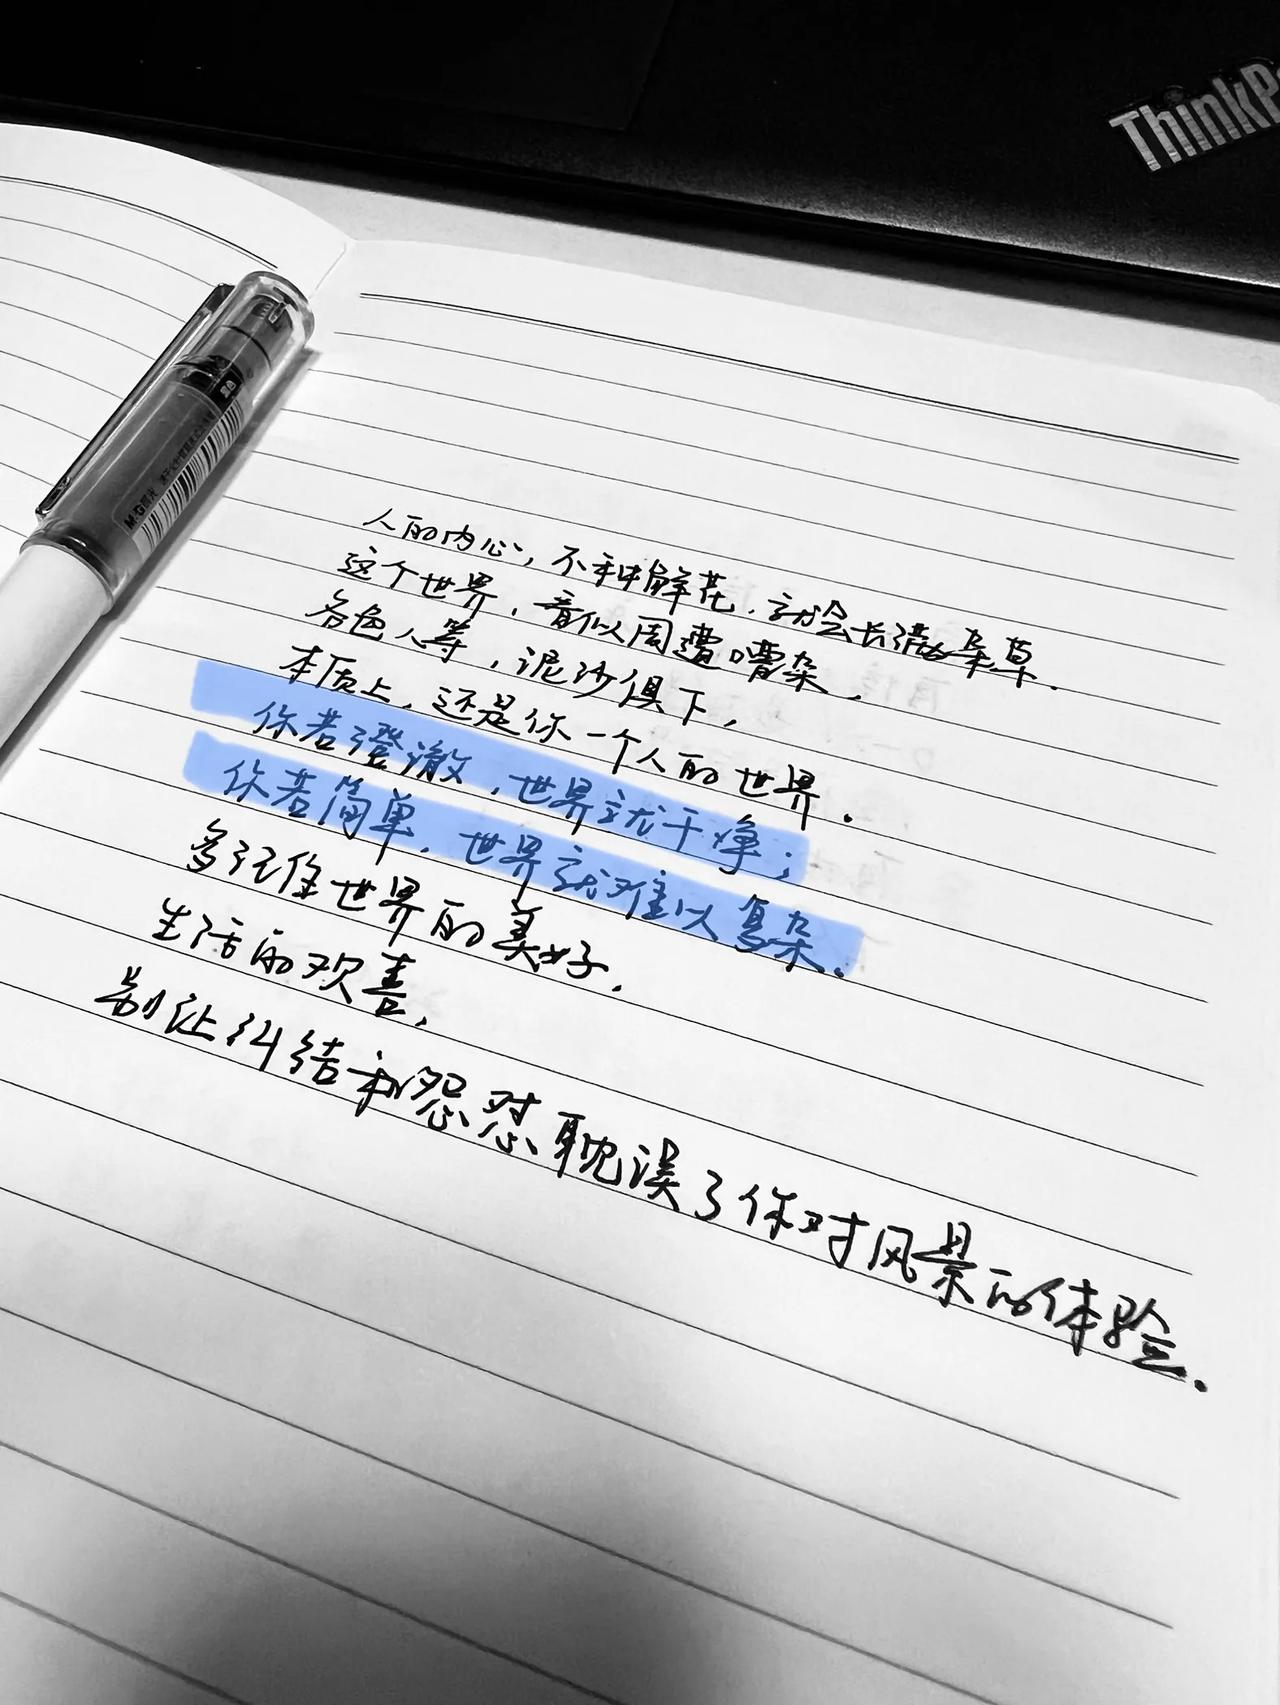 ThinkP
M&G晨光
人的内心，不种鲜花，就会长满杂草．
这个世界，看似周遭嘈杂，
各色人等，泥沙俱下，
本质上，还是你一个人的世界．
你若澄澈，世界就干净；
你若简单，世界就难以复杂．
多记住世界的美好．
生活的欢喜，
别让纠结和怨怼耽误了你对风景的体验．